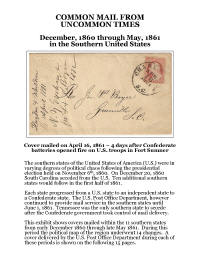 COMMON MAIL FROM
UNCOMMON TIMES
December, 1860 through May, 1861
in the Southern United States
Cover mailed on April 16, 1861 – 4 days after Confederate
batteries opened fire on U.S. troops in Fort Sumter
The southern states of the United States of America (U.S.) were in
varying degrees of political chaos following the presidential
election held on November 6th, 1860. On December 20, 1860
South Carolina seceded from the U.S. Ten additional southern
states would follow in the first half of 1861.
Each state progressed from a U.S. state to an independent state to
a Confederate state. The U.S. Post Office Department, however
continued to provide mail service in the southern states until
June 1, 1861. Tennessee was the only southern state to secede
after the Confederate government took control of mail delivery.
This exhibit shows covers mailed within the 11 southern states
from early December 1860 through late May 1861. During this
period the political map of the region underwent 14 changes. A
cover delivered by the U.S. Post Office Department during each of
these periods is shown on the following 15 pages.